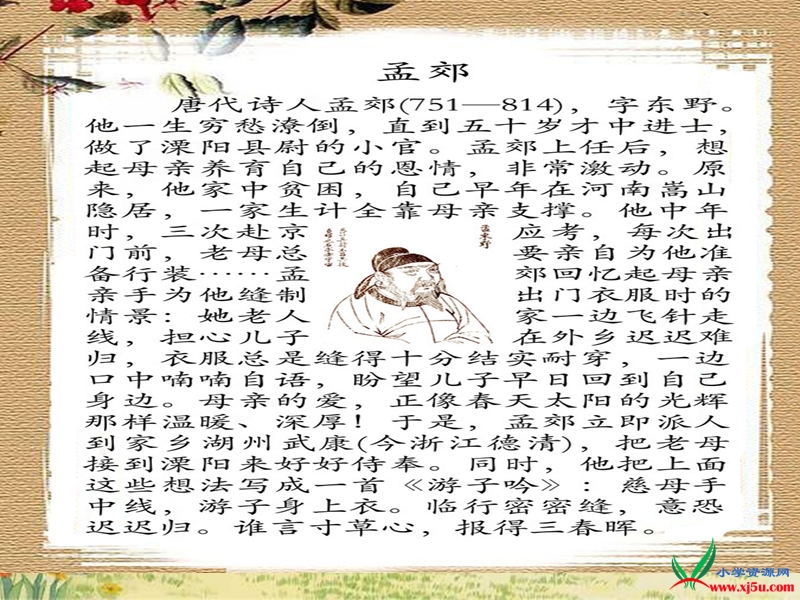 孟郊
唐代诗人孟郊(751—814)，字东野。
他一生穷愁潦倒，直到五十岁才中进士，
做了溧阳县尉的小官。孟郊上任后，想
起母亲养育自己的恩情，非常激动。原
来，他家中贫困，自己早年在河南嵩山
隐居，一家生计全靠母亲支撑。他中年
时，三次赴京应考，每次出
门前，老母总要亲自为他准
备行装……孟郊回忆起母亲
亲手为他缝制出门衣服时的
情景：她老人家一边飞针走
线，担心儿子在外乡迟迟难
归，衣服总是缝得十分结实耐穿，一边
口中喃喃自语，盼望儿子早日回到自己
身边。母亲的爱，正像春天太阳的光辉
那样温暖、深厚！于是，孟郊立即派人
到家乡湖州武康(今浙江德清)，把老母
接到溧阳来好好侍奉。同时，他把上面
这些想法写成一首《游子吟》：慈母手
中线，游子身上衣。临行密密缝，意恐
迟迟归。谁言寸草心，报得三春晖。
孟东野
小学资源网
www.xj5u.com